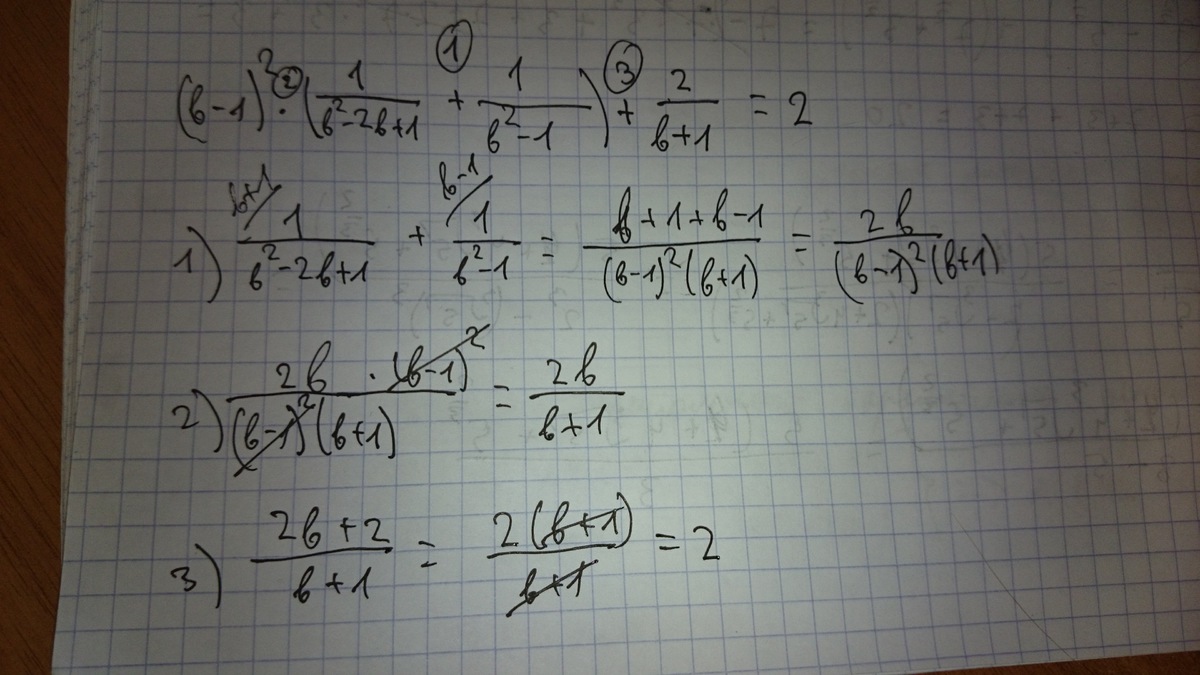 (b-1)² ② · (1/(b²-2b+1) ① + 1/(b²-1)) ③ + 2/(b+1) = 2
1) b+1/ 1/(b²-2b+1) + b-1/ 1/(b²-1) = (b+1+b-1)/((b-1)²(b+1)) = 2b/((b-1)²(b+1))
2) (2b · (b-1)²)/((b-1)²(b+1)) = 2b/(b+1)
3) (2b+2)/(b+1) = (2(b+1))/(b+1) = 2